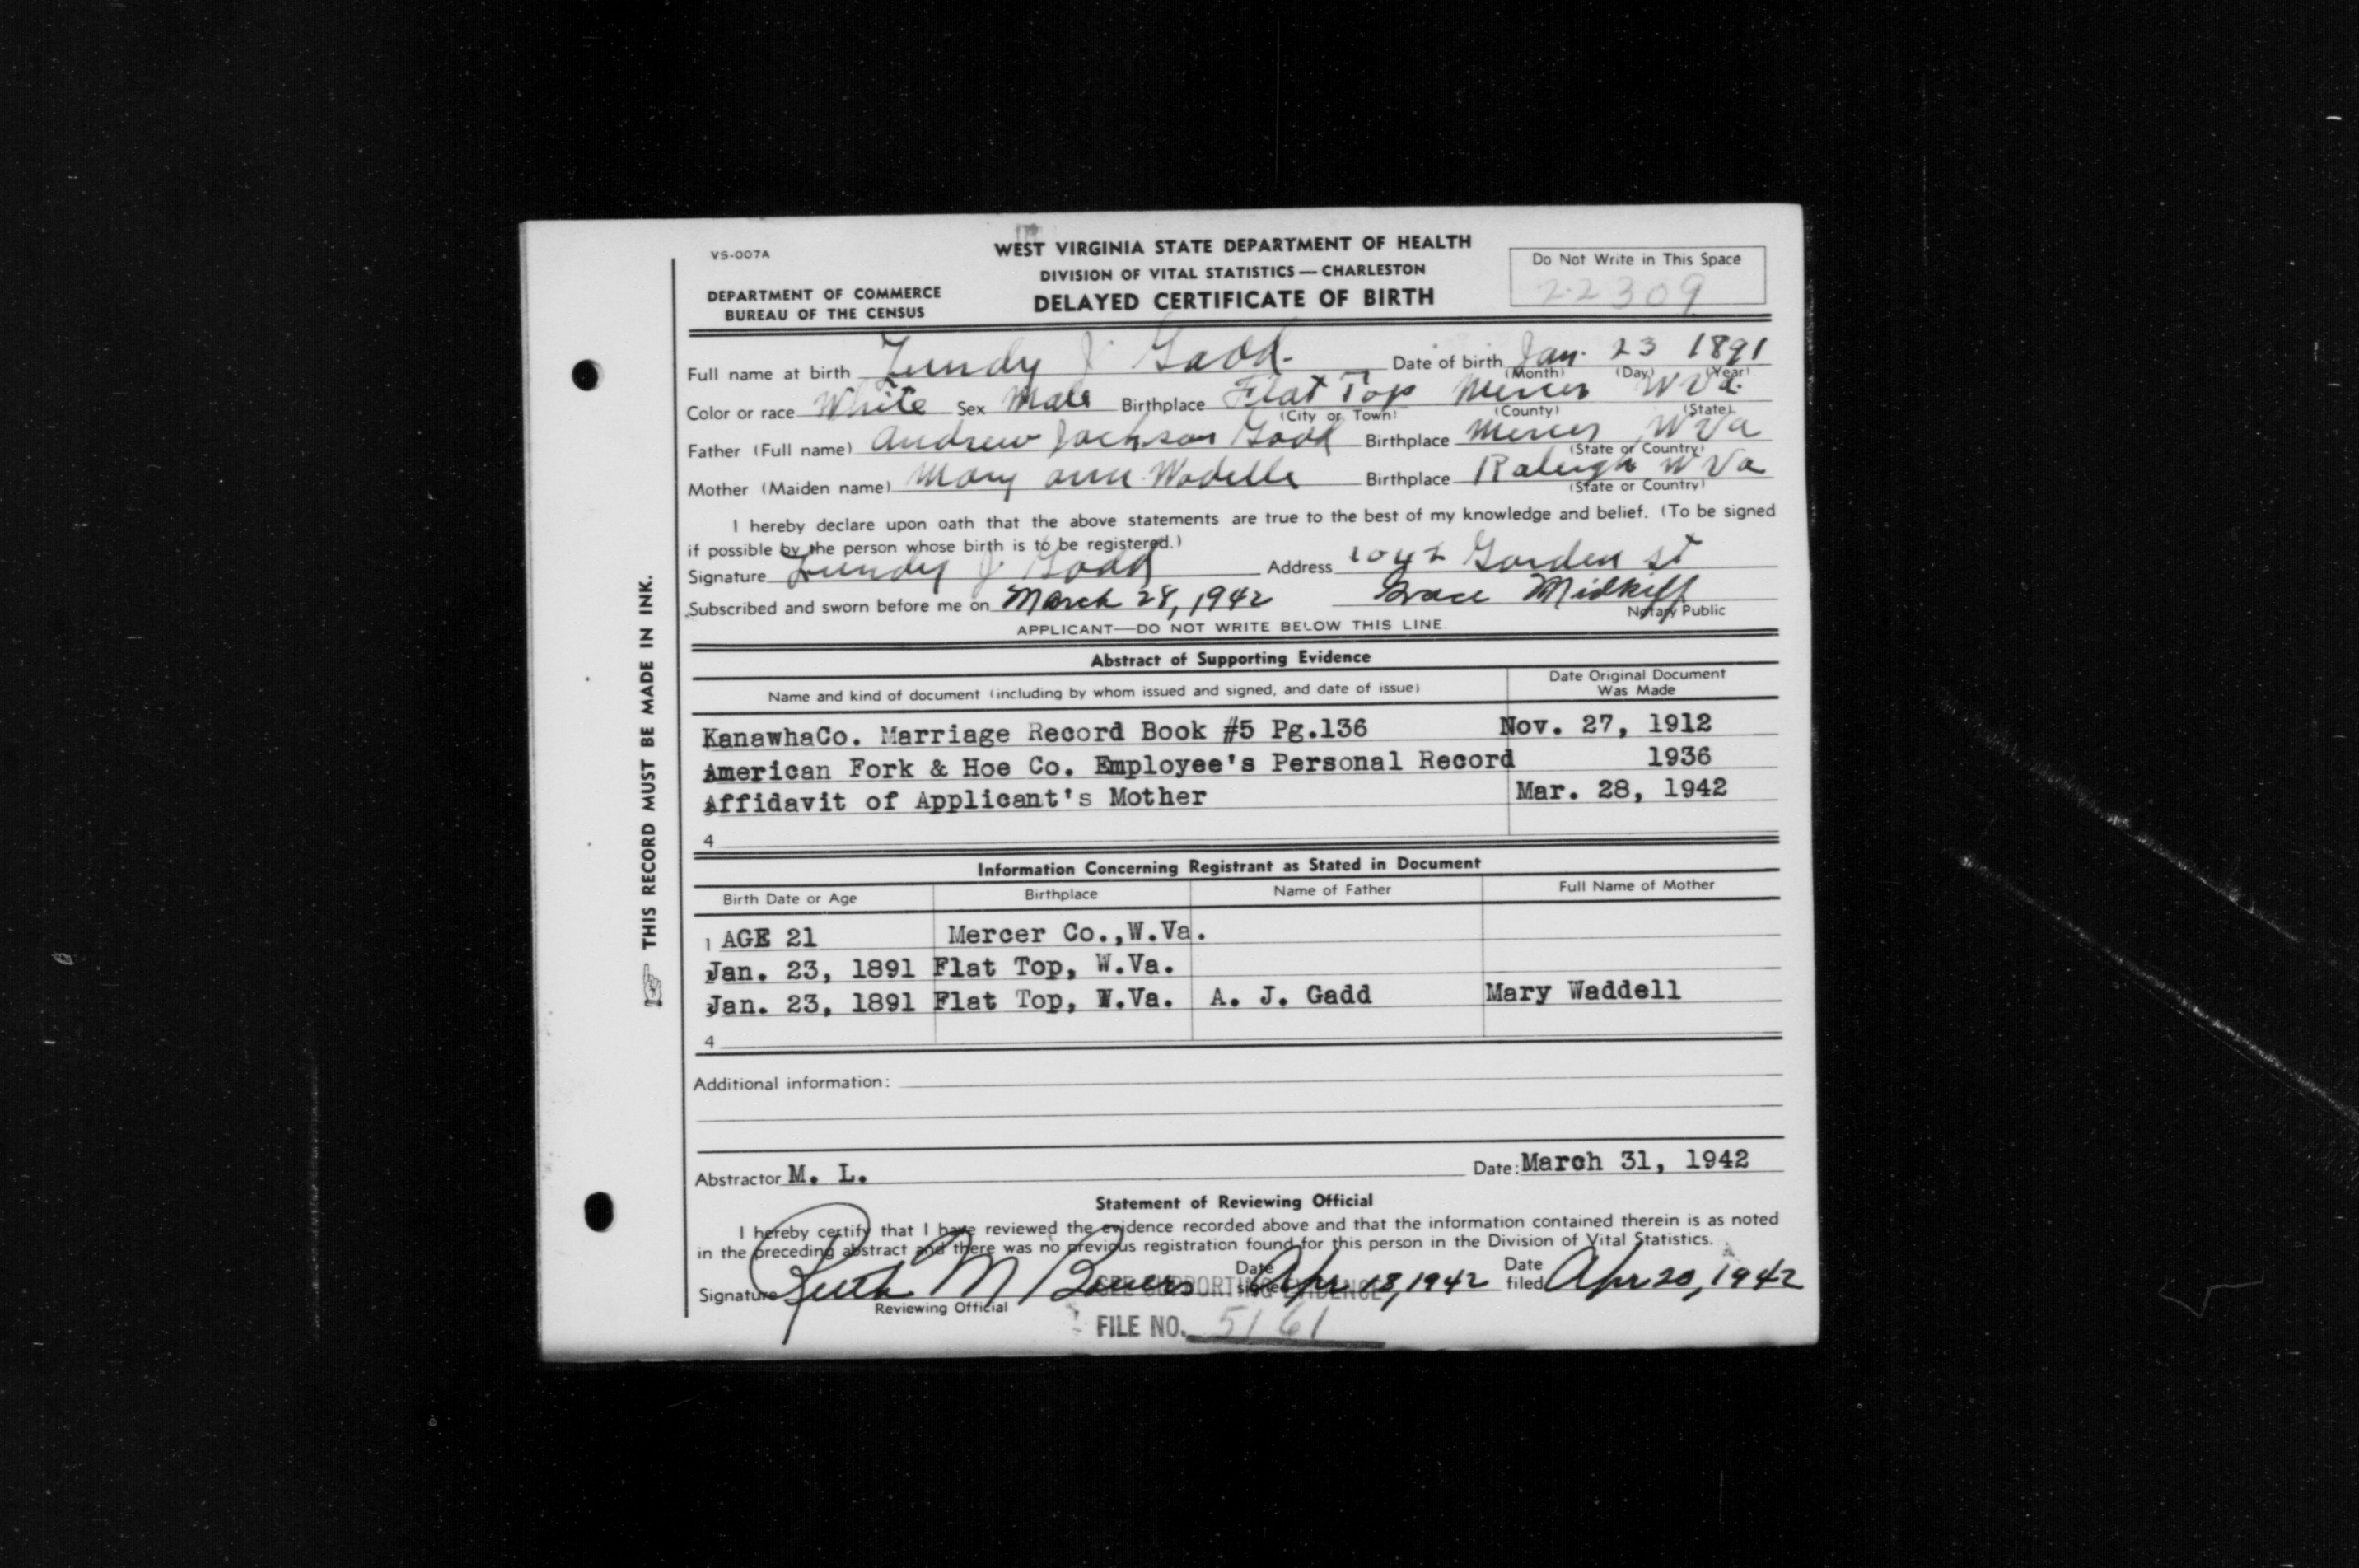 VS-007A
WEST VIRGINIA STATE DEPARTMENT OF HEALTH
DIVISION OF VITAL STATISTICS — CHARLESTON
DELAYED CERTIFICATE OF BIRTH
DEPARTMENT OF COMMERCE
BUREAU OF THE CENSUS
Do Not Write in This Space
22309
THIS RECORD MUST BE MADE IN INK.
Full name at birth Lundy J. Gadd. Date of birth Jan. 23 1891
(Month) (Day) (Year)
Color or race White Sex Male Birthplace Flat Top Mercer W Va.
(City or Town) (County) (State)
Father (Full name) Andrew Jackson Gadd Birthplace Mercer W Va
(State or Country)
Mother (Maiden name) Mary Ann Wadelle Birthplace Raleigh W Va
(State or Country)
I hereby declare upon oath that the above statements are true to the best of my knowledge and belief. (To be signed
if possible by the person whose birth is to be registered.)
Signature Lundy J. Gadd Address 1042 Garden st
Subscribed and sworn before me on March 28, 1942 Grace Midkiff
Notary Public
APPLICANT—DO NOT WRITE BELOW THIS LINE.
Abstract of Supporting Evidence
Name and kind of document (including by whom issued and signed, and date of issue) Date Original Document
Was Made
KanawhaCo. Marriage Record Book #5 Pg.136 Nov. 27, 1912
American Fork & Hoe Co. Employee's Personal Record 1936
Affidavit of Applicant's Mother Mar. 28, 1942
4
Information Concerning Registrant as Stated in Document
Birth Date or Age Birthplace Name of Father Full Name of Mother
1 AGE 21 Mercer Co.,W.Va.
Jan. 23, 1891 Flat Top, W.Va.
Jan. 23, 1891 Flat Top, W.Va. A. J. Gadd Mary Waddell
4
Additional information:
Abstractor M. L. Date: March 31, 1942
Statement of Reviewing Official
I hereby certify that I have reviewed the evidence recorded above and that the information contained therein is as noted
in the preceding abstract and there was no previous registration found for this person in the Division of Vital Statistics.
Signature Ruth M Bowers Date signed Apr 18, 1942 Date filed Apr 20, 1942
Reviewing Official
SEE SUPPORTING EVIDENCE
FILE NO. 5161